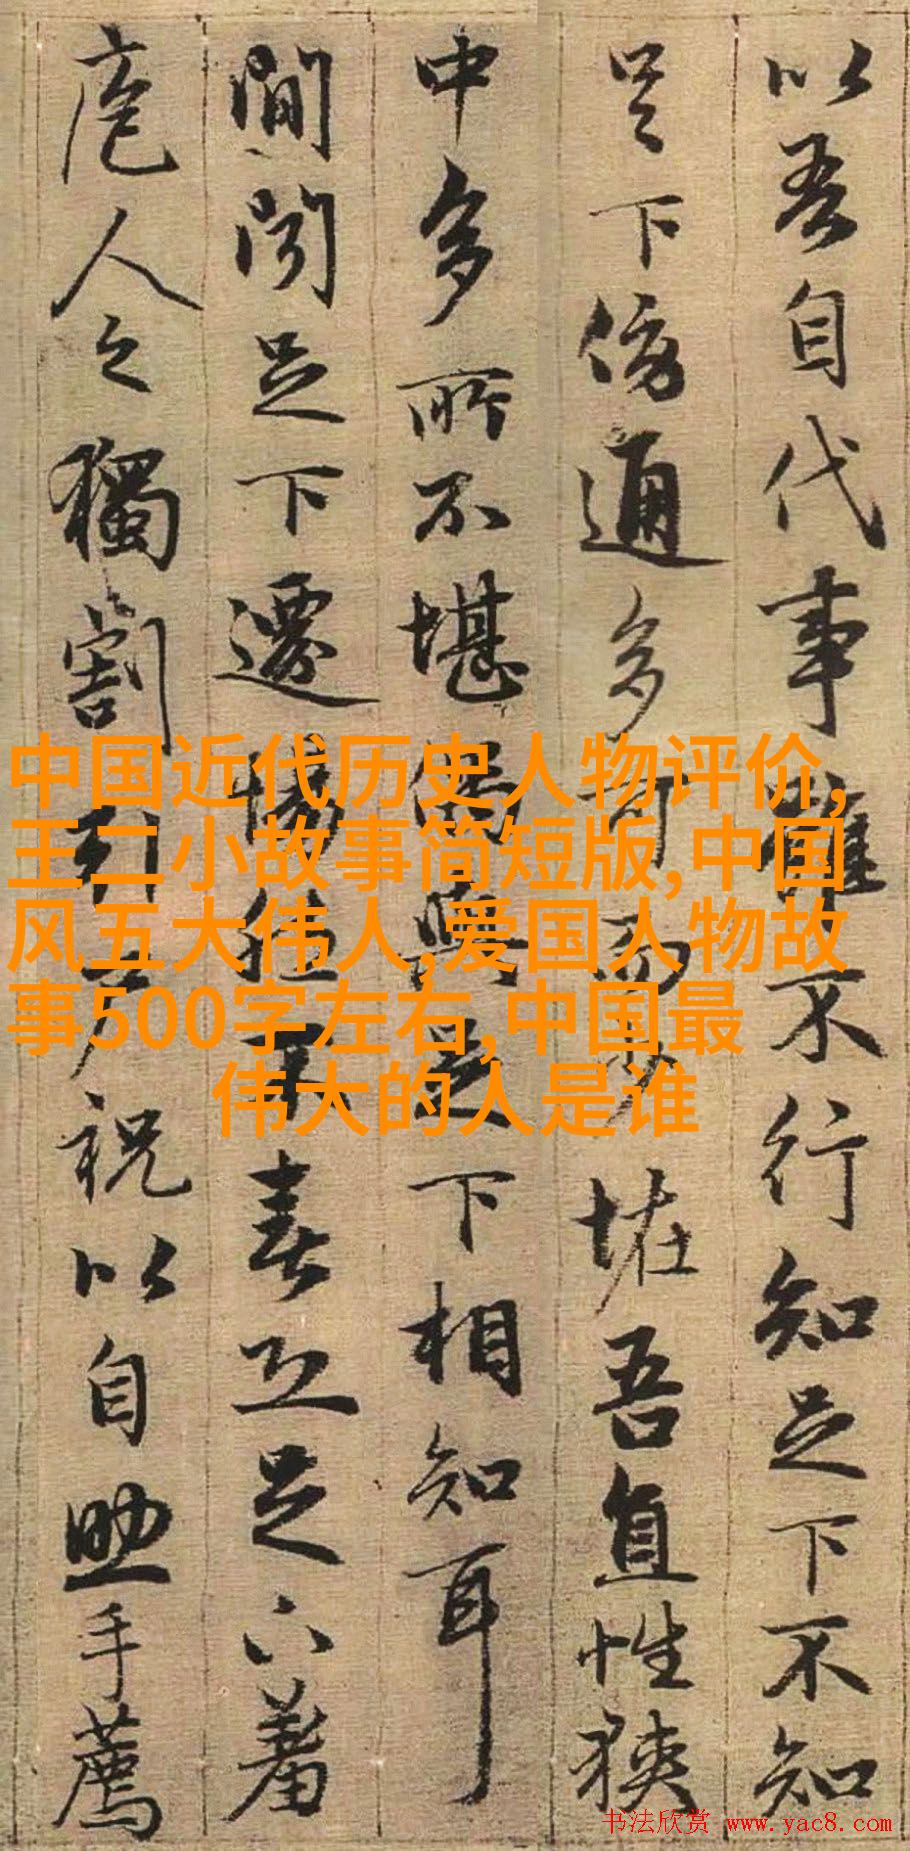 以吾自代事雖不行知足下不知
足下傍通多可而少恠吾直性狹
中多所不堪偶與足下相知耳
間聞足下遷惕然不喜恐足下羞
庖人之獨割引尸祝以自助手薦
中国近代历史人物评价,
王二小故事简短版,中国
风五大伟人,爱国人物故
事500字左右,中国最
伟大的人是谁
书法欣赏 www.yac8.com